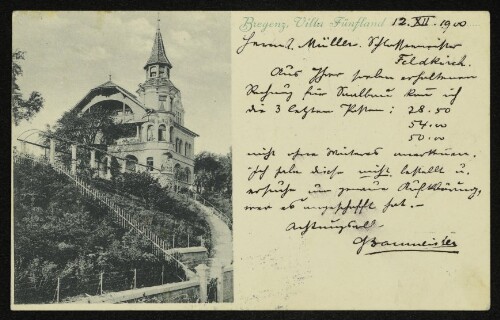 Bregenz, Villa Fünfland 12. XII. 1900
Herrn L. Müller. Schlossermeister
Feldkirch.
Aus Ihrer soeben erhaltenen
Rechnung für Saalbau kann ich
die 3 letzten Posten: 28.50
54.00
50.00
nicht ohne Weiteres anerkennen.
Ich habe diese nicht bestellt u.
ersuche um genaue Aufklärung,
wer es angeschafft hat.-
Achtungsvoll
GBaumeister